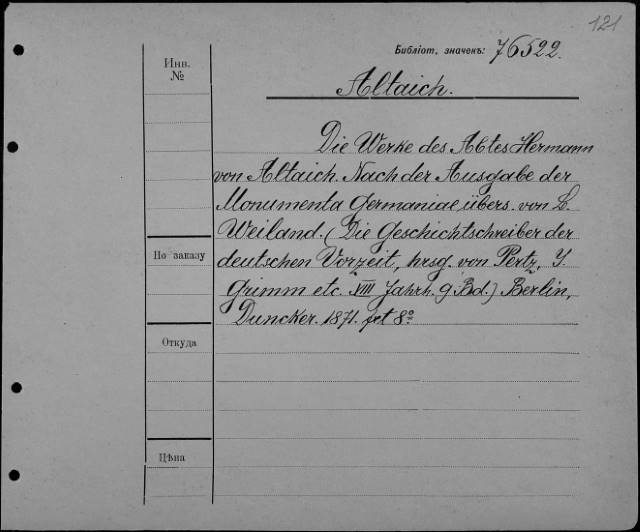 121
Библіот. значекъ: 76522.
Инв.
№
Altaich.
Die Werke des Abtes Hermann
von Altaich. Nach der Ausgabe der
Monumenta Germaniae übers. von L.
Weiland. (Die Geschichtschreiber der
По заказу
deutschen Vorzeit, hrsg. von Pertz, J.
Grimm etc. XIII Jahrh. 9 Bd.) Berlin,
Duncker. 1871. 8º
Откуда
Цѣна